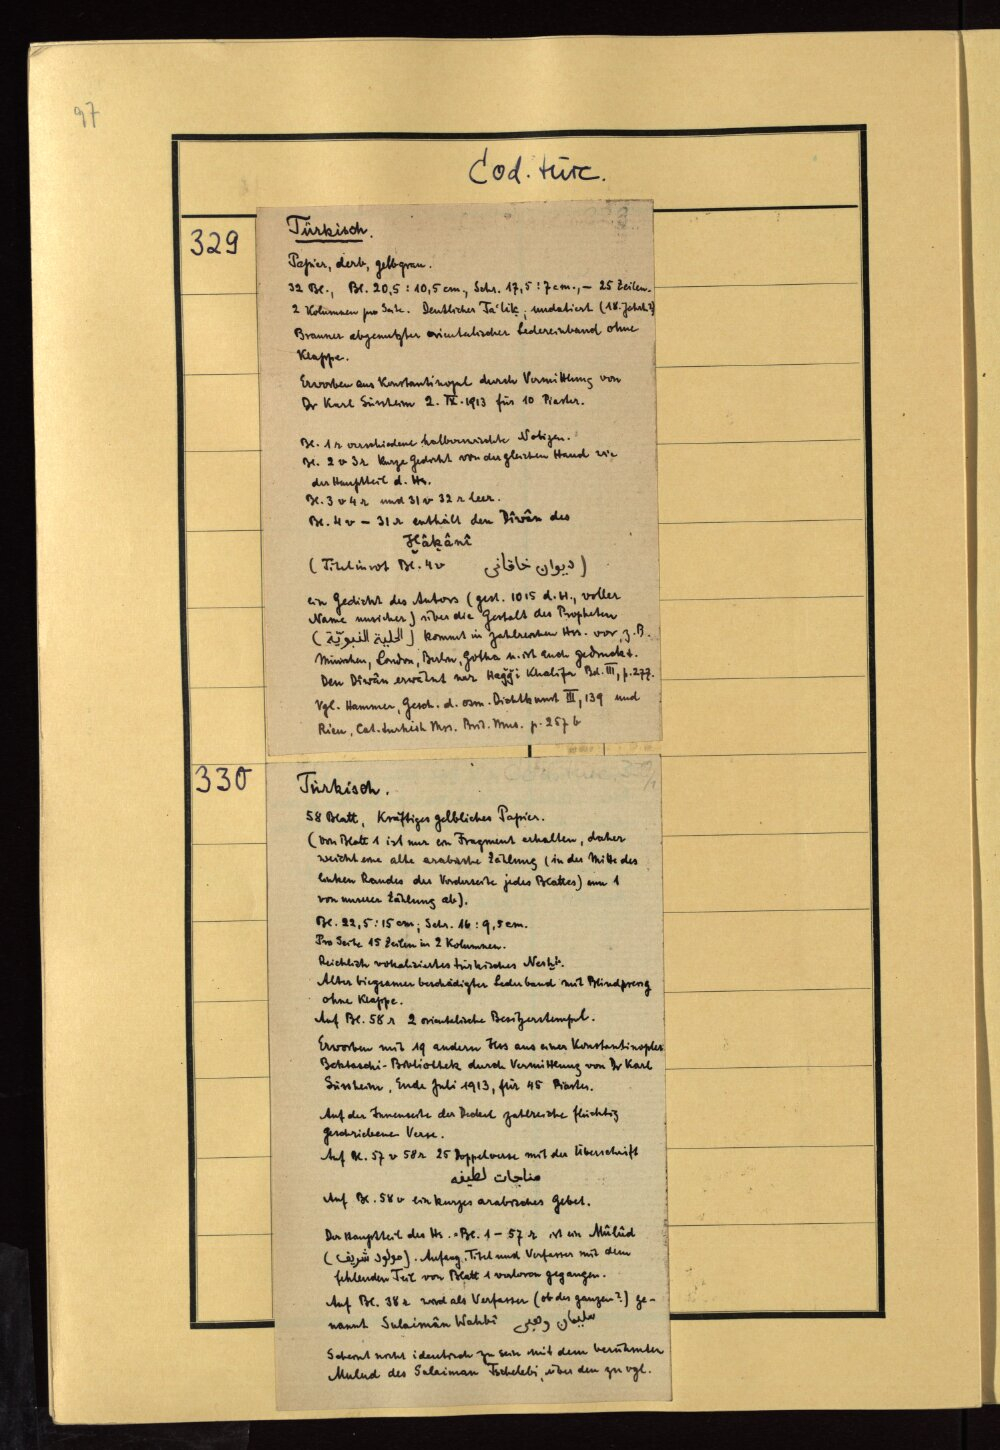 97
Cod. turc.
329
Türkisch.
Papier, derb, gelbgrau.
32 Bl., Bl. 20,5 : 10,5 cm., Schr. 17,5 : 7 cm., – 25 Zeilen.
2 Kolumnen pro Seite. Deutliches Ta'lik; undatiert (18. Jahrh.?)
Brauner abgenutzter orientalischer Ledereinband ohne
Klappe.
Erworben aus Konstantinopel durch Vermittlung von
Dr Karl Süssheim 2. IX. 1913 für 10 Piaster.
Bl. 1 r verschiedene halbverwischte Notizen.
Bl. 2 v 3 r kurze Gedicht von der gleichen Hand wie
der Hauptteil d. Hs.
Bl. 3 v 4 r und 31 v 32 r leer.
Bl. 4 v – 31 r enthält den Dîwân des
Ḫâḳânî
(Titel in rot Bl. 4 v ديوان خاقانى)
ein Gedicht des Autors (gest. 1015 d. H., voller
Name unsicher) über die Gestalt des Propheten
(الحلية النبويّة) kommt in zahlreichen Hss. vor, z. B.
München, London, Berlin, Gotha u. ist auch gedruckt.
Den Dîwân erwähnt nur Haǧǧi Khalifa Bd. III, p. 277.
Vgl. Hammer, Gesch. d. osm. Dichtkunst III, 139 und
Rieu, Cat. turkish Mss. Brit. Mus. p. 257 b
330
Türkisch.
58 Blatt, Kräftiges gelbliches Papier.
(Von Blatt 1 ist nur ein Fragment erhalten, daher
weicht eine alte arabische Zählung (in der Mitte des
linken Randes der Vorderseite jedes Blattes) um 1
von unserer Zählung ab).
Bl. 22,5 : 15 cm; Schr. 16 : 9,5 cm.
Pro Seite 15 Zeilen in 2 Kolumnen.
Reichlich vokalisiertes türkisches Neskhi.
Alter biegsamer beschädigter Lederband mit Blindpressg
ohne Klappe.
Auf Bl. 58 r 2 orientalische Besitzerstempel.
Erworben mit 19 andern Hss aus einer Konstantinopler
Bektaschi-Bibliothek durch Vermittlung von Dr Karl
Süssheim, Ende Juli 1913, für 45 Piaster.
Auf der Innenseite der Deckel zahlreiche flüchtig
geschriebene Verse.
Auf Bl. 57 v 58 r 25 Doppelverse mit der Überschrift
مناجات لطيفه
Auf Bl. 58 v ein kurzes arabisches Gebet.
Der Hauptteil der Hs. = Bl. 1 – 57 r ist ein Mûlûd
(مولود شريف). Anfang, Titel und Verfasser mit dem
fehlenden Teil von Blatt 1 verloren gegangen.
Auf Bl. 38 r wird als Verfasser (ob des ganzen?) ge-
nannt Sulaimân Wahbî سليمان وهبى
Scheint nicht identisch zu sein mit dem berühmten
Mulud des Sulaiman Tschelebi, über den zu vgl.